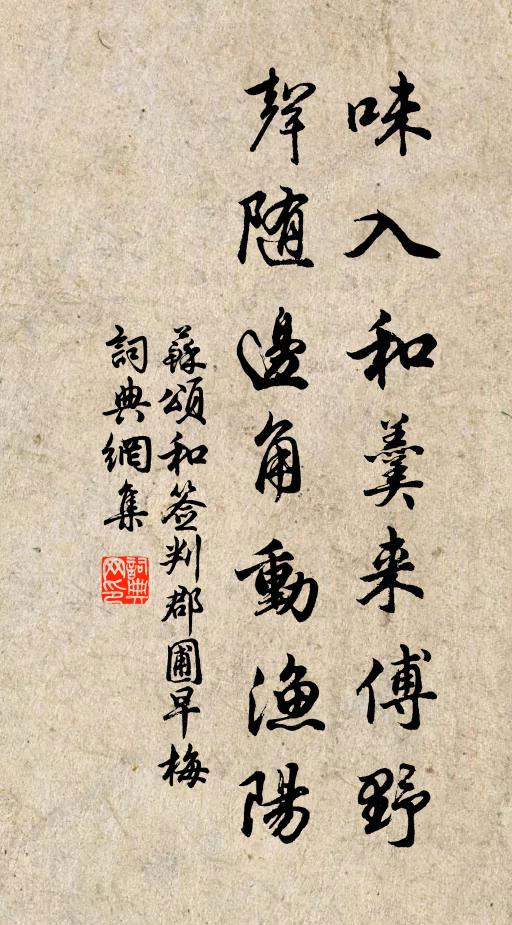 味入和羹来傅野
聲随邊角動漁陽
蘇頌和签判郡圃早梅
詞典網集
詞典网印